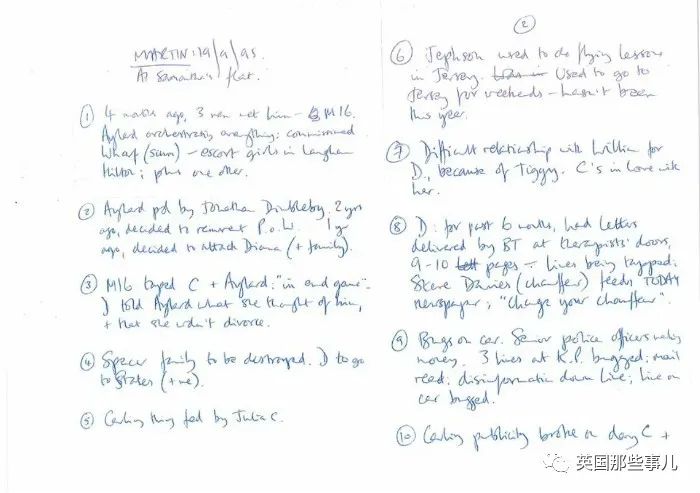 MARTIN: 19/9/95
At Samantha's flat.
① 4 months ago, 3 men met him - MI6
Aylard orchestrating everything: commissioned
Wharf (Sam) - escort girls in Langham
Hilton; plus one other.
② Aylard pd by Jonathan Dimbleby. 2 yrs
ago, decided to reinvent P.o.W. 1 yr
ago, decided to attack Diana (+ family).
③ MI6 taped C + Aylard: "in end game" -
D told Aylard what she thought of him,
+ that she wdn't divorce.
④ Spencer family to be destroyed. D to go
to States (+ve).
⑤ Carling thing fed by Julia C.
②
⑥ Jephson used to do flying lessons
in Jersey. Used to go to
Jersey for weekends - hasn't been
this year.
⑦ Difficult relationship with William for
D, because of Tiggy. C's in love with
her.
⑧ D: for past 6 months, had letters
delivered by BT at therapists' doors,
9-10 pages - lines being tapped:
Steve Davies (chauffeur) feeds TODAY
newspaper; "Change your chauffeur".
⑨ Bugs on car. Senior police officers making
money. 3 lines at K.P. bugged; mail
read; disinformation down line; line on
car bugged.
⑩ Carling publicity broke on day C +
英国那些事儿